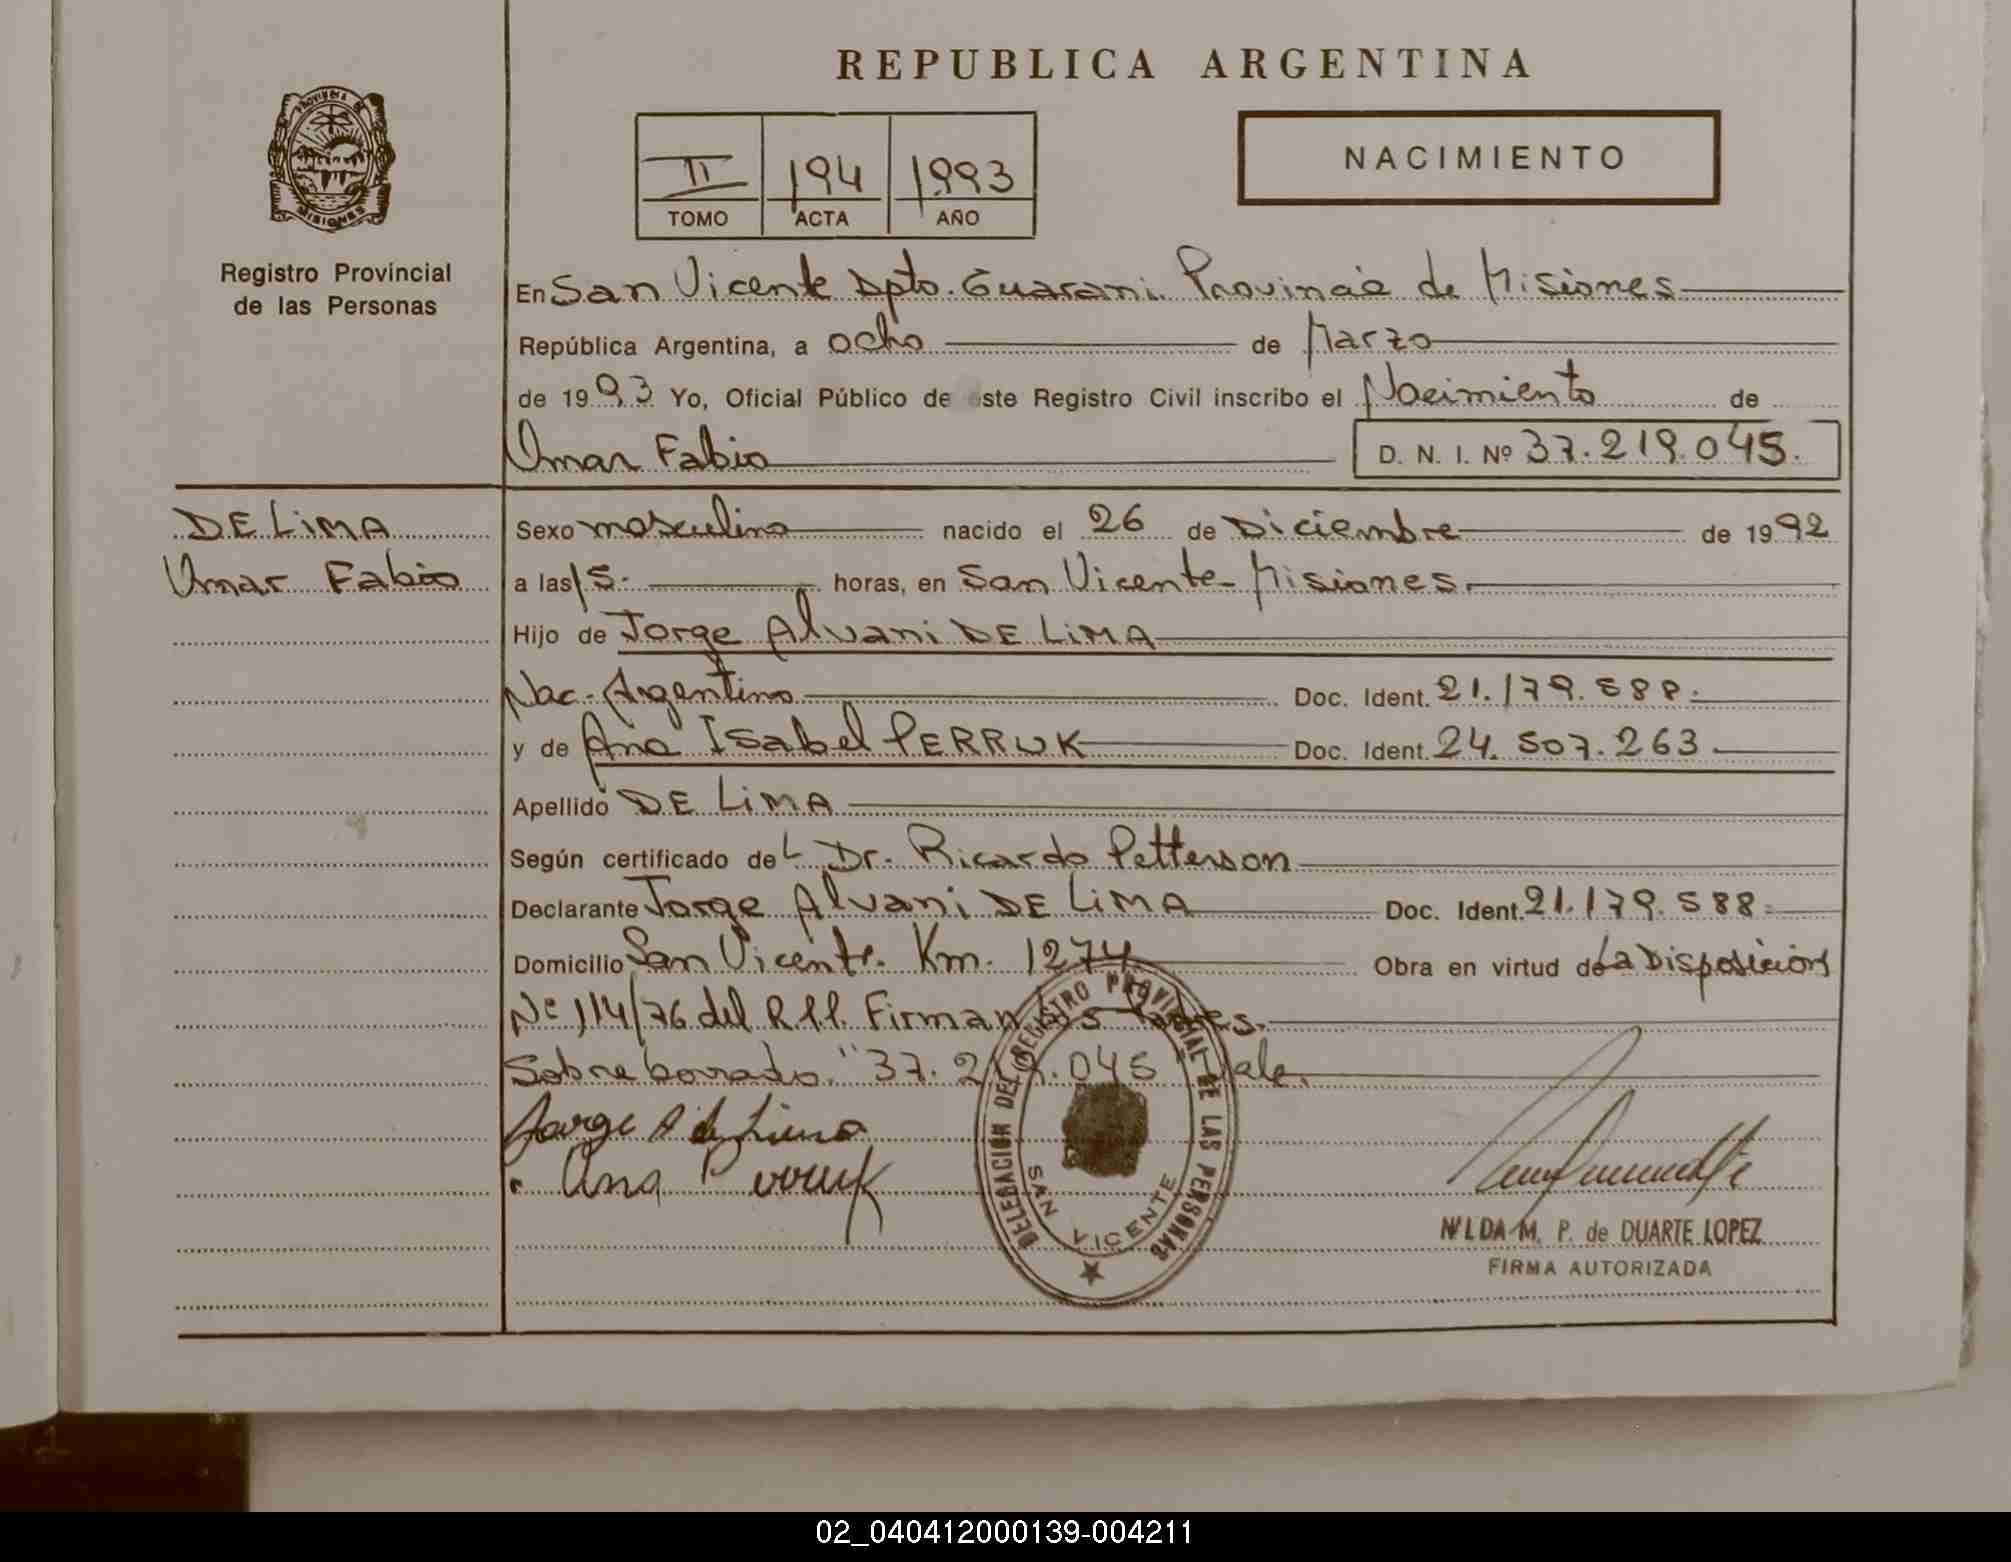 REPUBLICA ARGENTINA
PROVINCIA DE
MISIONES
Registro Provincial
de las Personas
II 194 1993
TOMO ACTA AÑO
NACIMIENTO
En San Vicente Dpto. Guarani. Provincia de Misiones
República Argentina, a ocho de Marzo
de 1993 Yo, Oficial Público de este Registro Civil inscribo el Nacimiento de
Omar Fabio D. N. I. Nº 37.219.045.
DE LiMA
Omar Fabio
Sexo masculino nacido el 26 de Diciembre de 1992
a las 15. horas, en San Vicente-Misiones.
Hijo de Jorge Alvani DE LiMA
Nac. Argentino Doc. Ident. 21.179.588.
y de Ana Isabel PERRUK Doc. Ident. 24.507.263.
Apellido DE LiMA
Según certificado del Dr. Ricardo Petterson
Declarante Jorge Alvani DE LiMA Doc. Ident. 21.179.588.
Domicilio San Vicente. Km. 1274 Obra en virtud de La Disposición
Nº 114/76 del R.P.P. Firman los Padres.
Sobre borrado: "37.219.045" Vale.
Jorge A de Lima
Ana Perruk
DELEGACION DEL REGISTRO PROVINCIAL DE LAS PERSONAS
SAN VICENTE
NILDA M. P. de DUARTE LOPEZ
FIRMA AUTORIZADA
02_040412000139-004211